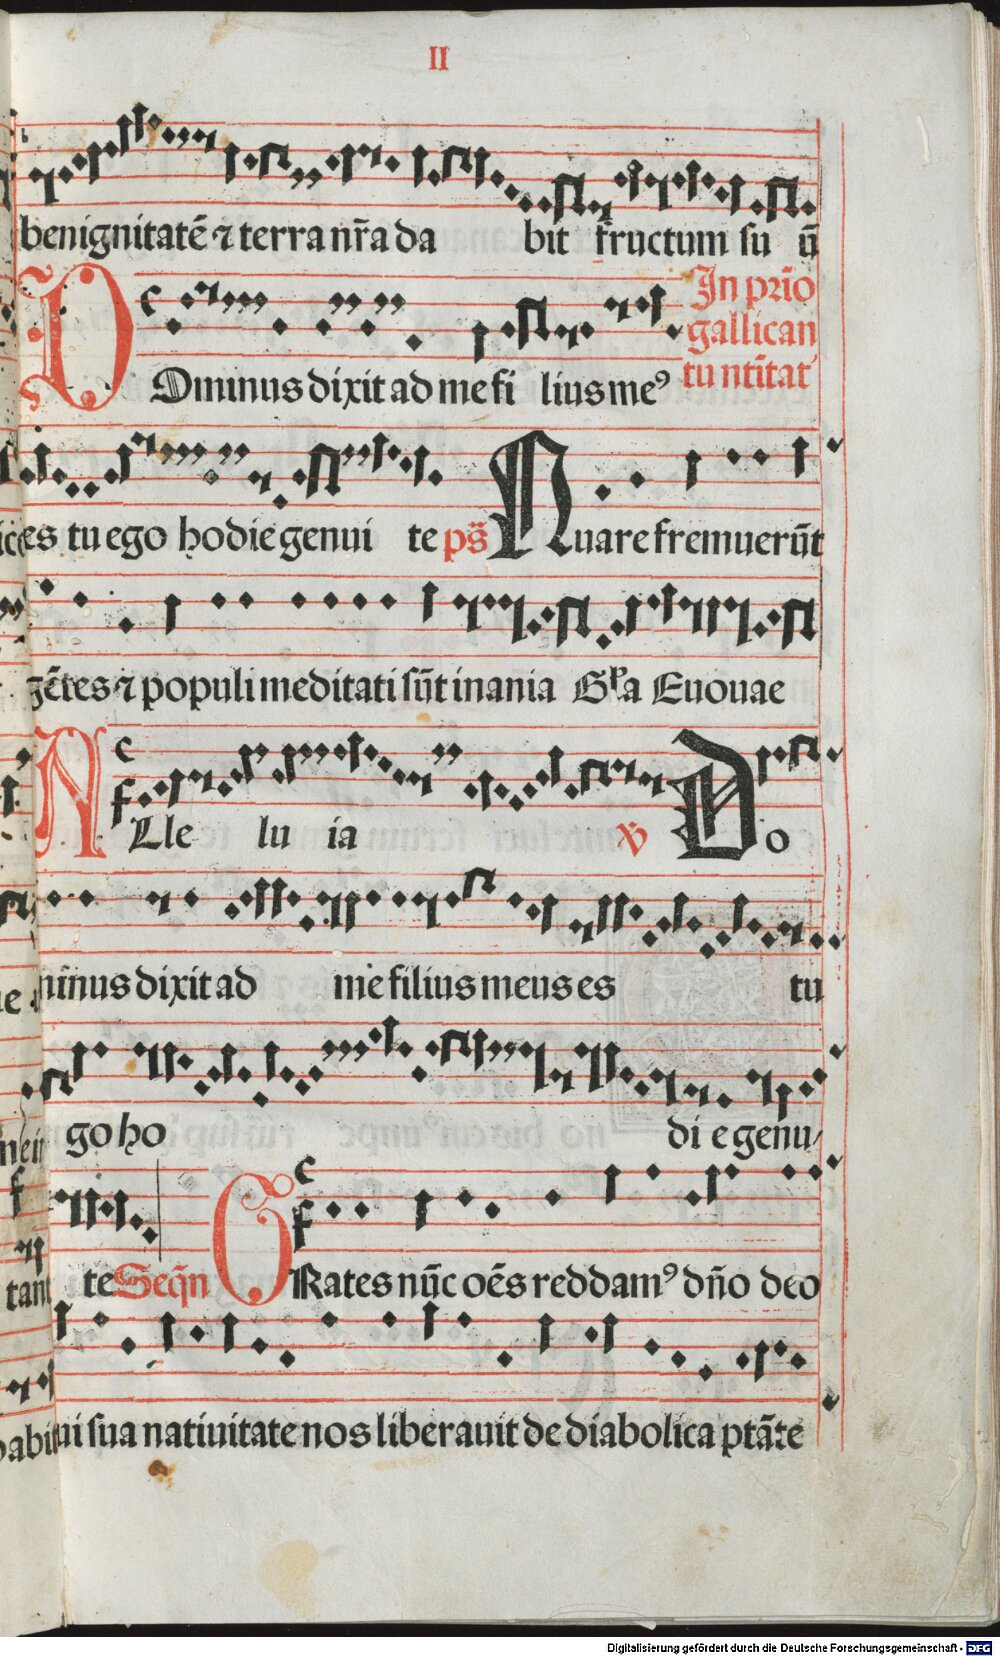 II
benignitatē ⁊ terra nr̄a da bit fructum su ū
In prīo
gallican
tu nt̄itat'
DOminus dixit ad me fi lius meꝰ
es tu ego hodie genui te ps̄ Quare fremuerūt
gētes ⁊ populi meditati sūt inania Gl'a Euouae
ALle lu ia ℣ Do
minus dixit ad me filius meus es tu
go ho di e genu/
te Seqn̄ GRates nūc oēs reddamꝰ dn̄o deo
ui sua natiuitate nos liberauit de diabolica ptāte
Digitalisierung gefördert durch die Deutsche Forschungsgemeinschaft - DFG